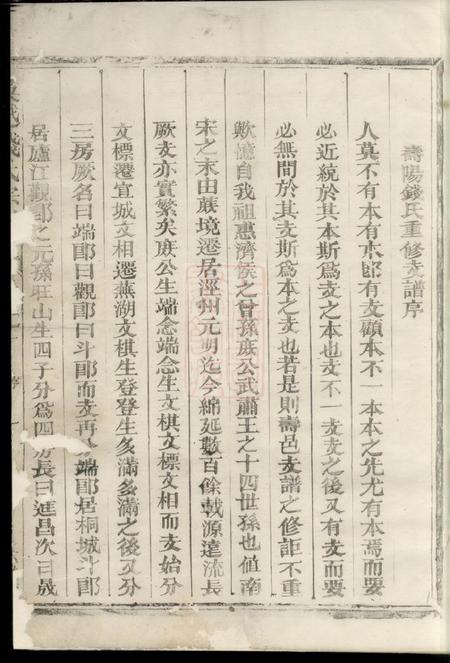 壽陽錢氏重修支譜序
人莫不有本有本卽有支顧本不一本本之先尤有本焉而要
必近統於其本斯爲支之本也支不一支支之後又有支而要
必無間於其支斯爲本之支也若是則壽邑支譜之修詎不重
歟憶自我祖惠濟侯之曾孫庻公武肅王之十四世孫也値南
宋之末由蔴境遷居涇州元明迄今綿延數百餘載源遠流長
厥支亦實繁矣庻公生端念端念生文棋文標文相而支始分
文標遷宣城文相遷蕪湖文棋生登登生多滿多滿之後又分
三房厥名曰端郎曰觀郎曰斗郎而支再分端郎居桐城斗郎
居廬江觀郎之元孫旺山生四子分爲四房長曰進昌次曰晟
錢氏宗
序